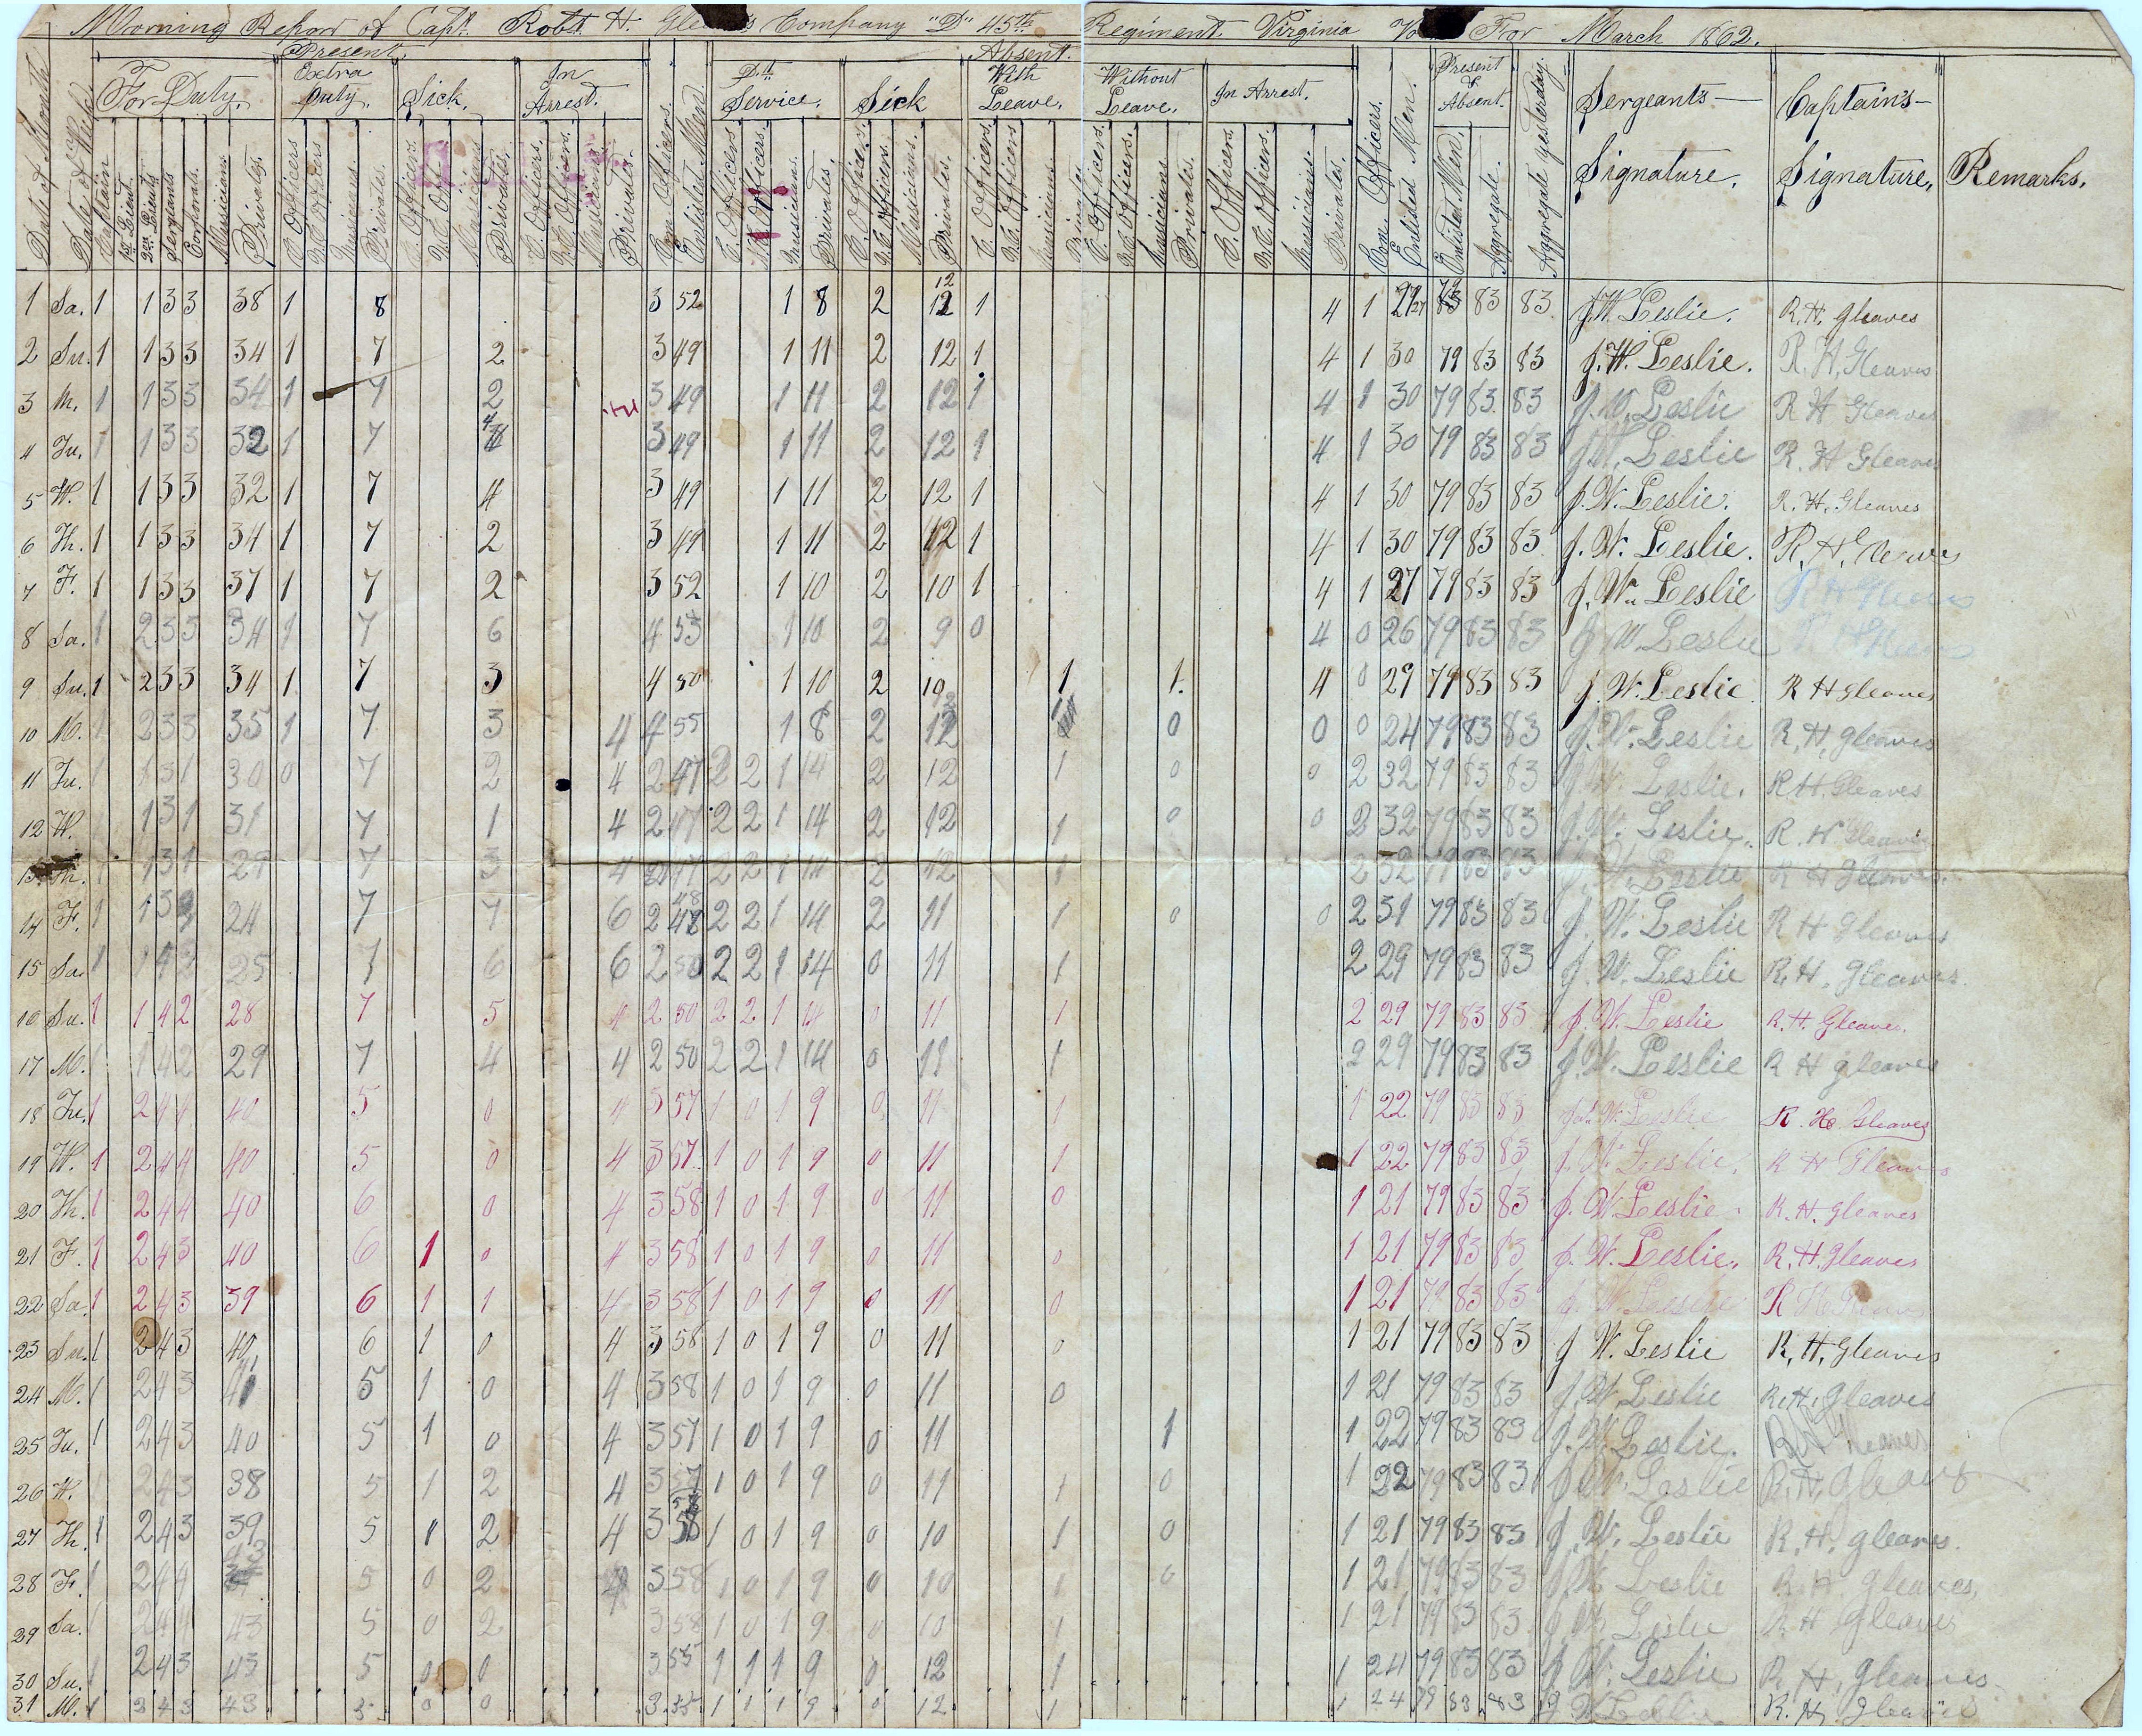 Morning Report of Capt. Robt. H. Company "D" 45th Regiment Virginia For March 1862.
Present. Absent.
For Duty. Extra Duty. Sick. In Arrest. Dt. Service. Sick With Leave. Without Leave. In Arrest. Present & Absent. Sergeants Signature. Captain's Signature. Remarks.
Date of Month Date of Week Captain 1st Lieut. 2nd Lieuts Sergeants Corporals. Musicians. Privates. C. Officers N.C. Officers Musicians. Privates. C. Officers. N.C. Officers Musicians Privates. C. Officers. N.C. Officers. Musicians Privates. Com. Officers. Enlisted Men. C. Officers N.C. Officers. Musicians. Privates. C. Officers. N.C. Officers. Musicians. Privates. C. Officers. N.C. Officers Musicians. Privates C. Officers. N.C. Officers. Musicians Privates. C. Officers. N.C. Officers. Musicians. Privates. Com. Officers. Enlisted Men. Enlisted Men. Aggregate. Aggregate yesterday.
1 Sa. 1 1 3 3 38 1 8 3 52 1 8 2 12 12 1 4 1 27 83 83 J. W. Leslie. R. H. Gleaves
2 Su. 1 1 3 3 34 1 7 2 3 49 1 11 2 12 1 4 1 30 79 83 83 J. W. Leslie. R. H. Gleaves
3 M. 1 1 3 3 34 1 7 2 3 49 1 11 2 12 1 4 1 30 79 83 83 J. W. Leslie R H Gleaves
4 Tu. 1 1 3 3 32 1 7 4 3 49 1 11 2 12 1 4 1 30 79 83 83 J. W. Leslie R. H Gleaves
5 W. 1 1 3 3 32 1 7 4 3 49 1 11 2 12 1 4 1 30 79 83 83 J. W. Leslie. R. H. Gleaves
6 Th. 1 1 3 3 34 1 7 2 3 49 1 11 2 12 1 4 1 30 79 83 83 J. W. Leslie. R. H. Gleaves
7 F. 1 1 3 3 37 1 7 2 3 52 1 10 2 10 1 4 1 27 79 83 83 J. W. Leslie R H Gleaves
8 Sa. 1 2 3 3 34 1 7 6 4 53 1 10 2 9 0 4 0 26 79 83 83 J W Leslie R H Gleaves
9 Su. 1 2 3 3 34 1 7 3 4 50 1 10 2 10 1 1. 4 0 29 79 83 83 J. W. Leslie R H Gleaves
10 M. 1 2 3 3 35 1 7 3 4 4 55 1 8 2 12 0 0 0 24 79 83 83 J. W. Leslie R. H. Gleaves
11 Tu. 1 1 3 1 30 0 7 2 4 2 47 2 2 1 14 2 12 1 0 0 2 32 79 83 83 J. W. Leslie. R. H. Gleaves
12 W. 1 3 1 31 7 1 4 2 47 2 2 1 14 2 12 1 0 0 2 32 79 83 83 J. W. Leslie. R. H Gleaves
13 Th. 1 1 3 1 29 7 3 4 2 47 2 2 1 14 2 12 1 2 32 79 83 83 J. W. Leslie R H Gleaves.
14 F. 1 1 3 24 7 7 6 2 48 2 2 1 14 2 11 1 0 0 2 31 79 83 83 J. W. Leslie R H Gleaves
15 Sa. 1 1 4 2 25 7 6 6 2 50 2 2 1 14 0 11 1 2 29 79 83 83 J. W. Leslie R. H. Gleaves.
16 Su. 1 1 4 2 28 7 5 4 2 50 2 2 1 14 0 11 1 2 29 79 83 83 J. W. Leslie R. H. Gleaves.
17 M. 1 1 4 2 29 7 4 4 2 50 2 2 1 14 0 11 1 2 29 79 83 83 J. W. Leslie R H Gleaves
18 Tu. 1 2 4 4 40 5 0 4 3 57 1 0 1 9 0 11 1 1 22 79 83 83 J. W. Leslie R. H. Gleaves
19 W. 1 2 4 4 40 5 0 4 3 57 1 0 1 9 0 11 1 1 22 79 83 83 J. W. Leslie. R H Gleaves
20 Th. 1 2 4 4 40 6 0 4 3 58 1 0 1 9 0 11 0 1 21 79 83 83 J. W. Leslie. R. H. Gleaves
21 F. 1 2 4 3 40 6 1 0 4 3 58 1 0 1 9 0 11 0 1 21 79 83 83 J. W. Leslie. R. H. Gleaves
22 Sa. 1 2 4 3 39 6 1 1 4 3 58 1 0 1 9 0 11 0 1 21 79 83 83 J. W. Leslie R H Gleaves
23 Su. 1 2 4 3 40 6 1 0 4 3 58 1 0 1 9 0 11 0 1 21 79 83 83 J W. Leslie R. H. Gleaves
24 M. 1 2 4 3 41 5 1 0 4 3 58 1 0 1 9 0 11 0 1 21 79 83 83 J. W. Leslie R. H. Gleaves
25 Tu. 1 2 4 3 40 5 1 0 4 3 57 1 0 1 9 0 11 1 1 22 79 83 83 J. W. Leslie. R H Gleaves
26 W. 1 2 4 3 38 5 1 2 4 3 57 1 0 1 9 0 11 1 0 1 22 79 83 83 J. W. Leslie R. H. Gleaves
27 Th. 1 2 4 3 39 5 1 2 4 3 58 1 0 1 9 0 10 1 0 1 21 79 83 83 J. W. Leslie R. H. Gleaves.
28 F. 1 2 4 4 43 5 0 2 4 3 58 1 0 1 9 0 10 1 0 1 21 79 83 83 J W Leslie R. H. Gleaves.
29 Sa. 1 2 4 4 43 5 0 2 3 58 1 0 1 9 0 10 1 1 21 79 83 83 J. W. Leslie R H Gleaves
30 Su. 1 2 4 3 43 5 0 0 3 55 1 1 1 9 0 12 1 1 24 79 83 83 J. W. Leslie R. H. Gleaves
31 M. 1 2 4 3 43 5 0 0 3 55 1 1 1 9 0 12 1 1 24 79 83 83 J W Leslie R. H. Gleaves